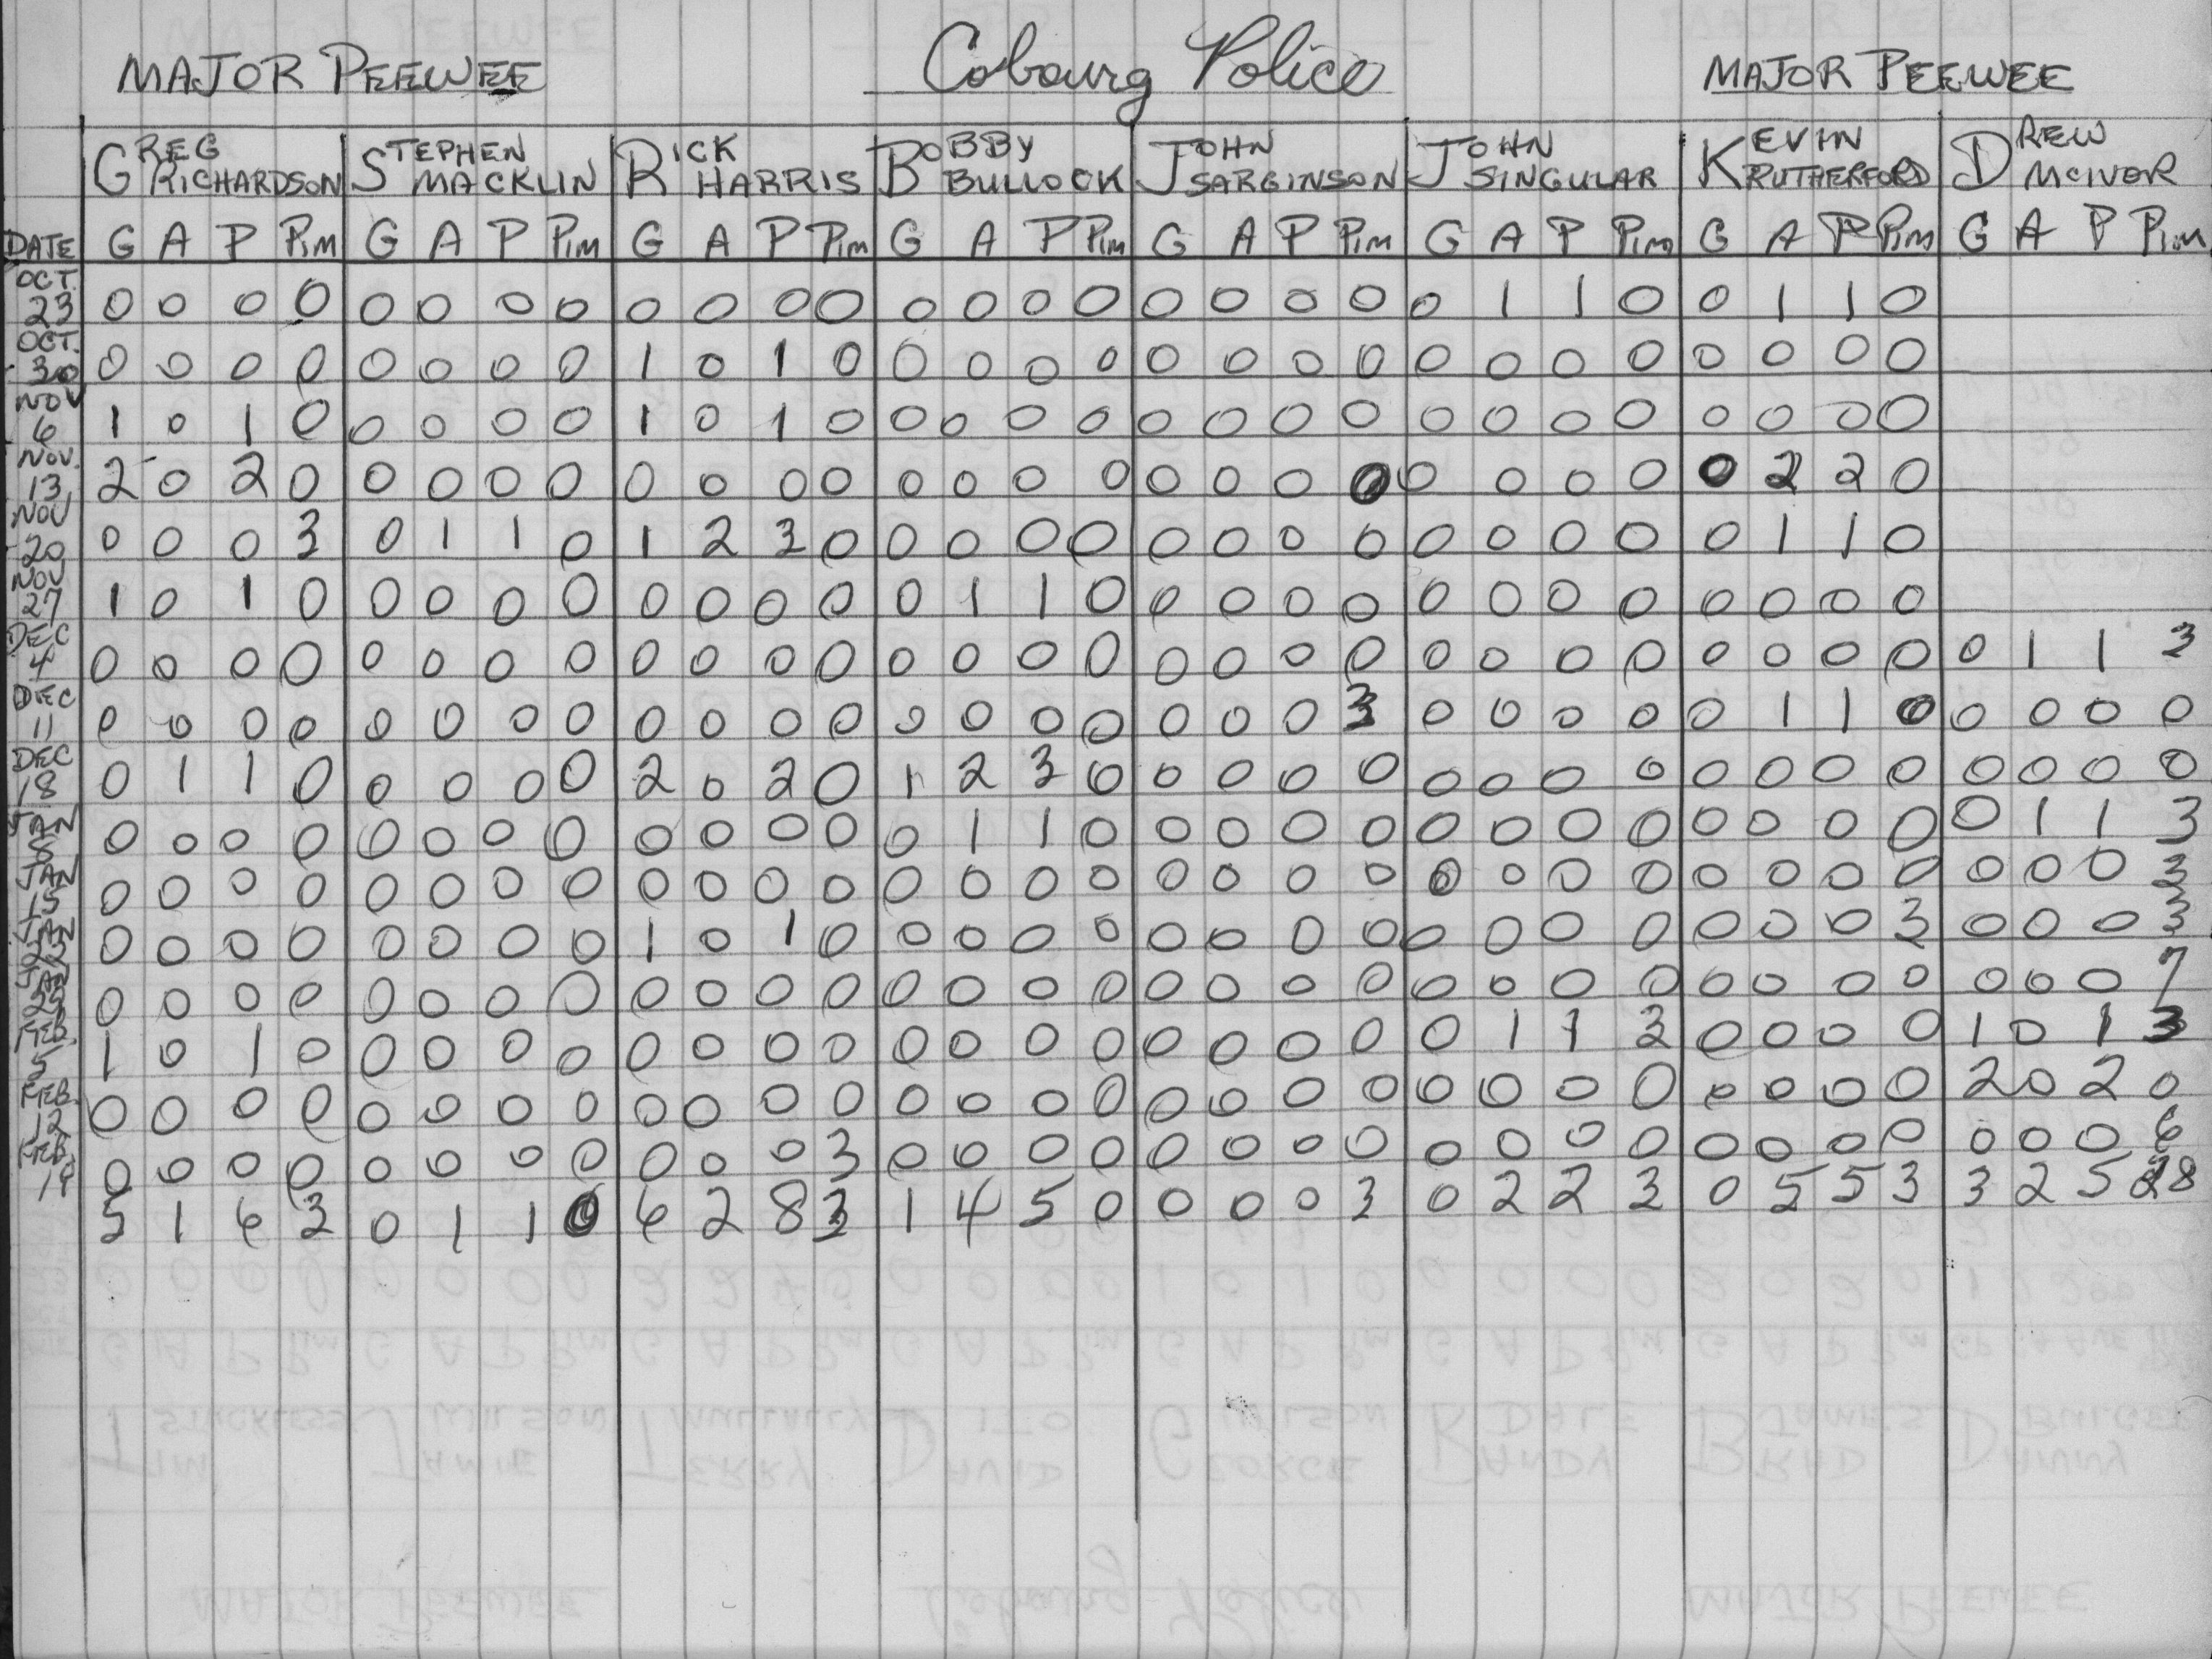 MAJOR PEEWEE Cobourg Police MAJOR PEEWEE
GREG RICHARDSON STEPHEN MACKLIN RICK HARRIS BOBBY BULLOCK JOHN SARGINSON JOHN SINGULAR KEVIN RUTHERFORD DREW McIVOR
DATE G A P Pim G A P Pim G A P Pim G A P Pim G A P Pim G A P Pim G A P Pim G A P Pim
OCT. 23 0 0 0 0 0 0 0 0 0 0 0 0 0 0 0 0 0 0 0 0 0 1 1 0 0 1 1 0
OCT. 30 0 0 0 0 0 0 0 0 1 0 1 0 0 0 0 0 0 0 0 0 0 0 0 0 0 0 0 0
NOV 6 1 0 1 0 0 0 0 0 1 0 1 0 0 0 0 0 0 0 0 0 0 0 0 0 0 0 0 0
NOV. 13 2 0 2 0 0 0 0 0 0 0 0 0 0 0 0 0 0 0 0 0 0 0 0 0 0 2 2 0
NOV 20 0 0 0 3 0 1 1 0 1 2 3 0 0 0 0 0 0 0 0 0 0 0 0 0 0 1 1 0
NOV 27 1 0 1 0 0 0 0 0 0 0 0 0 0 1 1 0 0 0 0 0 0 0 0 0 0 0 0 0
DEC 4 0 0 0 0 0 0 0 0 0 0 0 0 0 0 0 0 0 0 0 0 0 0 0 0 0 0 0 0 0 1 1 3
DEC 11 0 0 0 0 0 0 0 0 0 0 0 0 0 0 0 0 0 0 0 3 0 0 0 0 0 1 1 0 0 0 0 0
DEC 18 0 1 1 0 0 0 0 0 2 0 2 0 1 2 3 0 0 0 0 0 0 0 0 0 0 0 0 0 0 0 0 0
JAN 0 0 0 0 0 0 0 0 0 0 0 0 0 1 1 0 0 0 0 0 0 0 0 0 0 0 0 0 0 1 1 3
JAN 15 0 0 0 0 0 0 0 0 0 0 0 0 0 0 0 0 0 0 0 0 0 0 0 0 0 0 0 0 0 0 0 3
JAN 22 0 0 0 0 0 0 0 0 1 0 1 0 0 0 0 0 0 0 0 0 0 0 0 0 0 0 0 3 0 0 0 3
0 0 0 0 0 0 0 0 0 0 0 0 0 0 0 0 0 0 0 0 0 0 0 0 0 0 0 0 0 0 0 7
FEB. 5 1 0 1 0 0 0 0 0 0 0 0 0 0 0 0 0 0 0 0 0 0 1 1 3 0 0 0 0 1 0 1 3
FEB. 12 0 0 0 0 0 0 0 0 0 0 0 0 0 0 0 0 0 0 0 0 0 0 0 0 0 0 0 0 2 0 2 0
FEB. 19 0 0 0 0 0 0 0 0 0 0 0 3 0 0 0 0 0 0 0 0 0 0 0 0 0 0 0 0 0 0 0 6
5 1 6 3 0 1 1 0 6 2 8 3 1 4 5 0 0 0 0 3 0 2 2 3 0 5 5 3 3 2 5 28